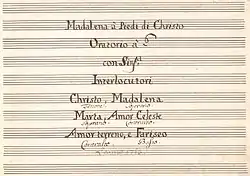 Madalena à Piedi di Christo
Oratorio à 5
con Sinf.
Interlocutori
Christo, Madalena
Tenore Soprano
Marta, Amor Celeste
Soprano Contralto
Amor terreno, e Fariseo
Contralto Basso